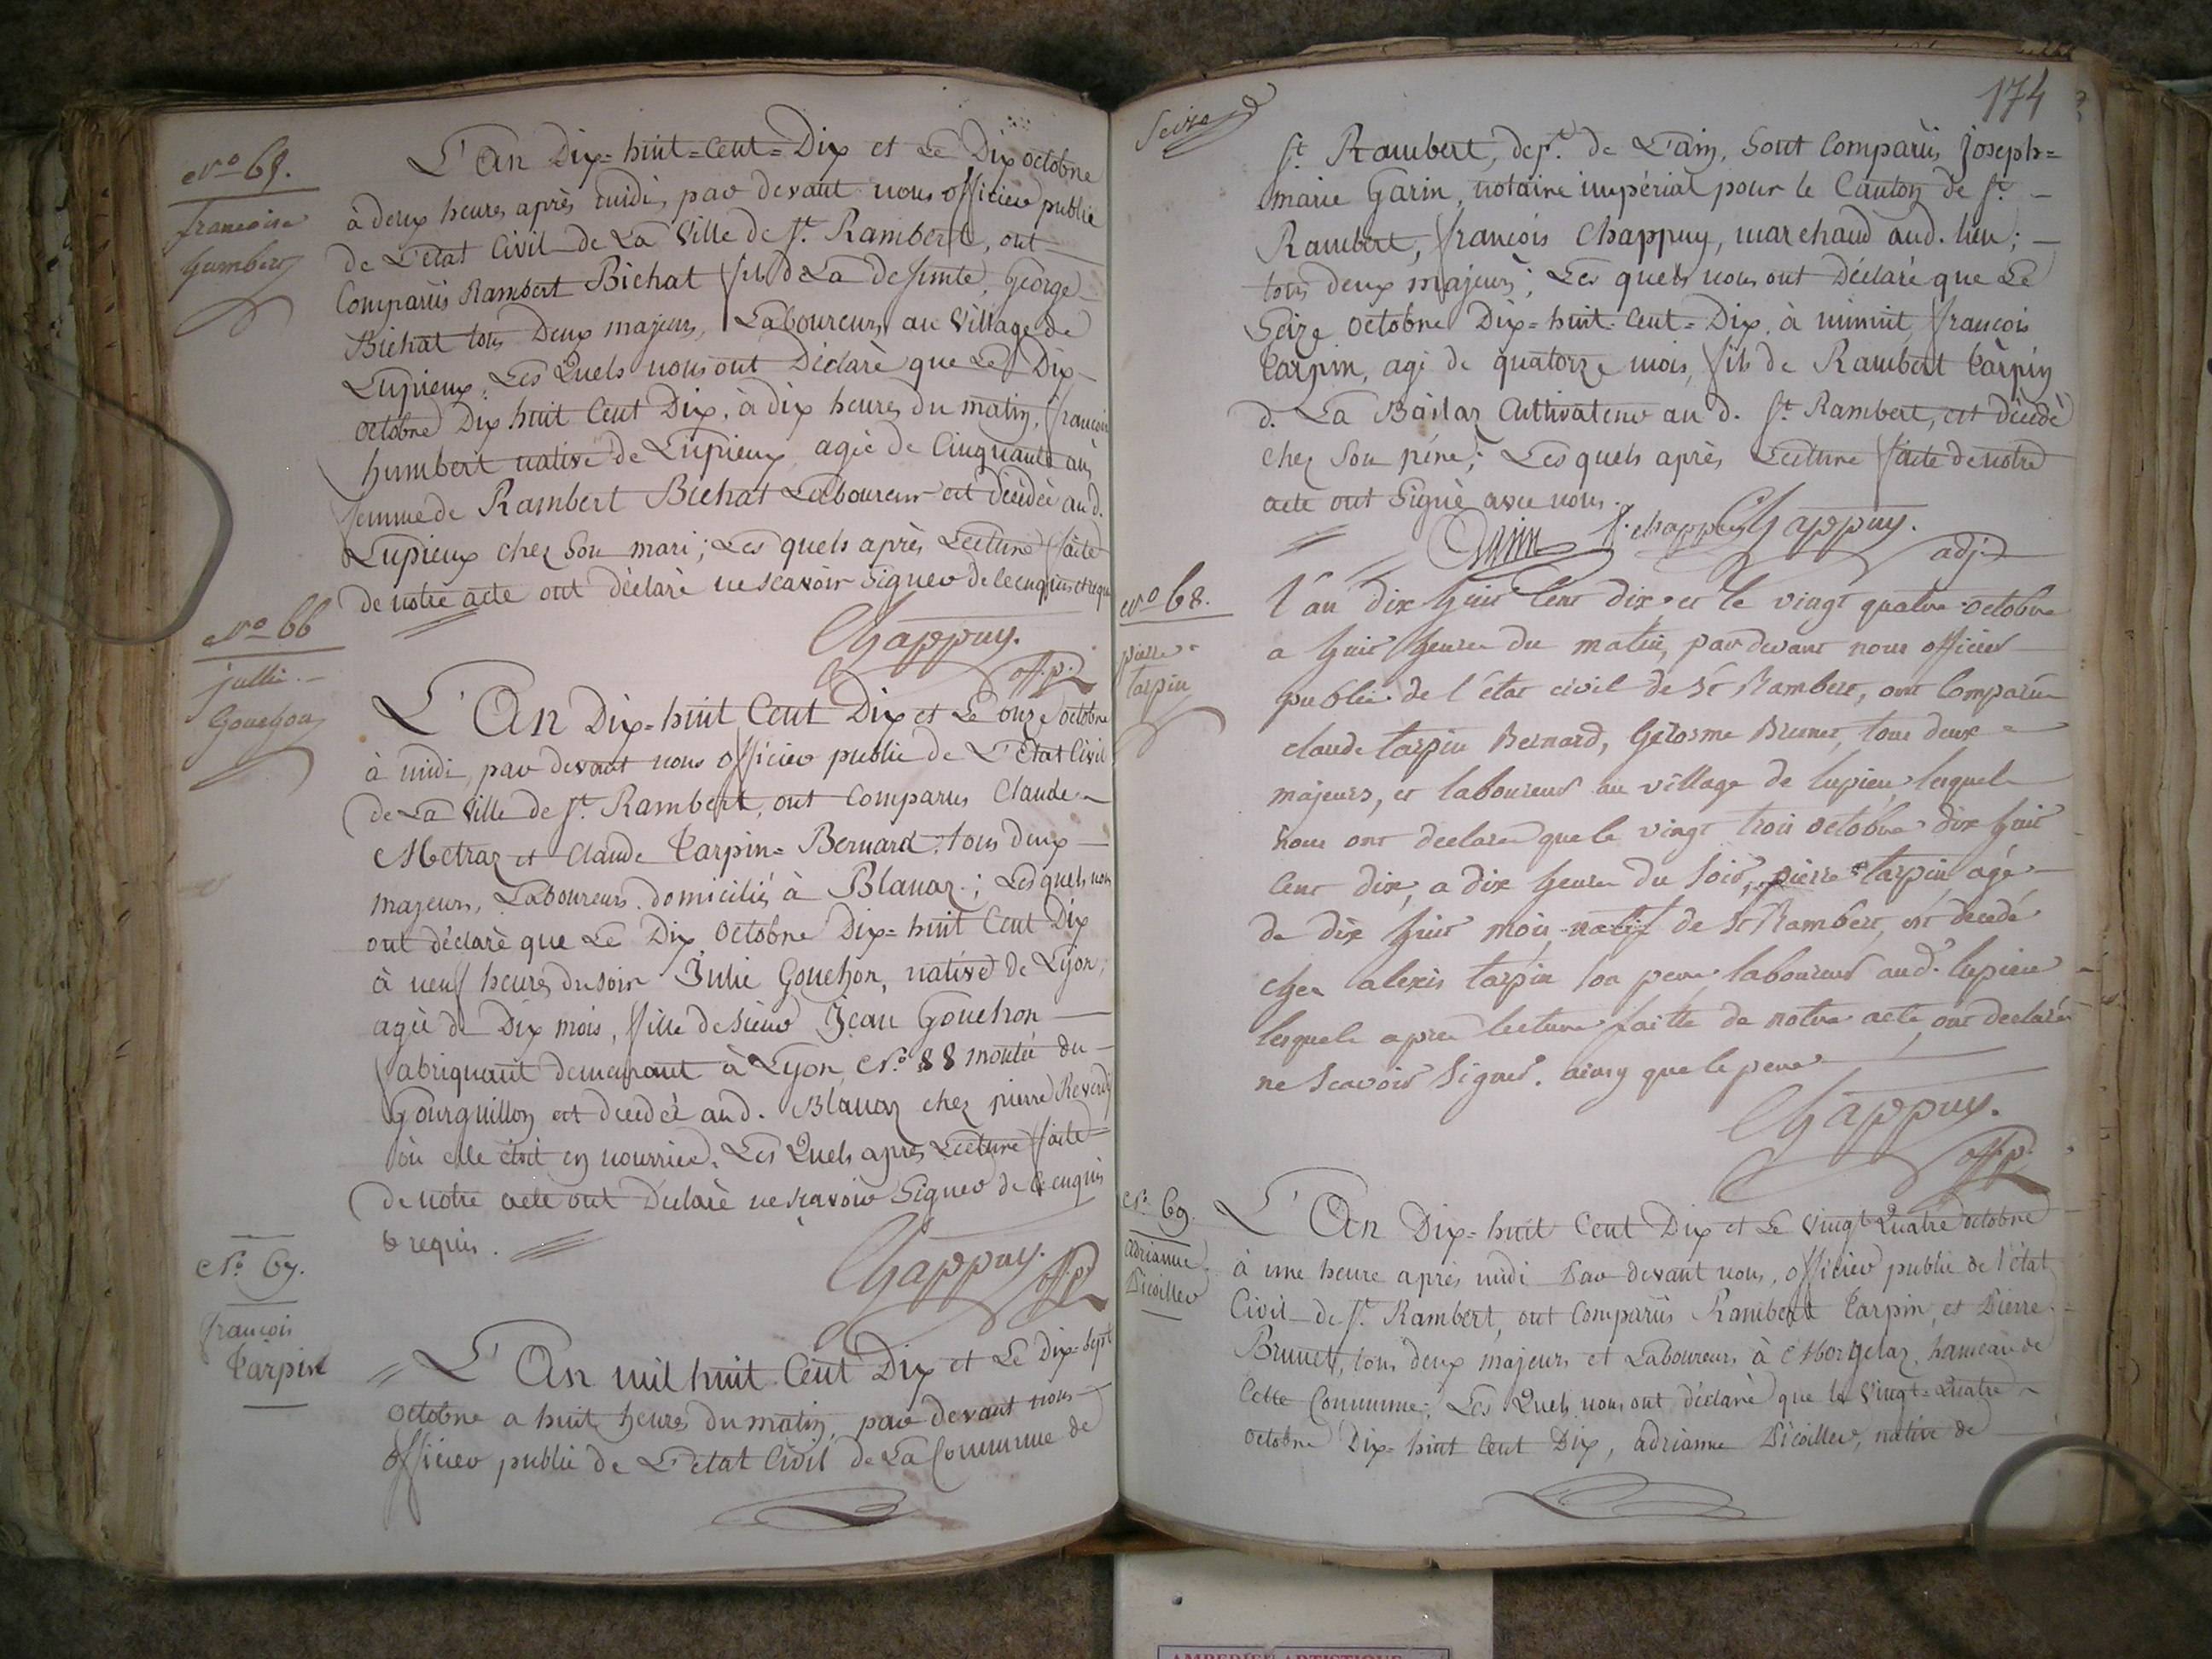 No 65.
francoise
humbert
L'An Dix-huit-Cent-Dix et Le Dix octobre
à deux heures après midi, par devant nous officier public
de L'état Civil de La Ville de St. Rambert, ont
Comparüs Rambert Bichat fils de La defunte, George
Bichat tous Deux majeurs, Laboureurs au Village de
Lupieux; Les Quels nous ont Déclaré que Le Dix
octobre Dix huit Cent Dix, à dix heures du matin, francoise
humbert native de Lupieux agée de Cinquante ans
femme de Rambert Bichat Laboureur est décédée aud.
Lupieux chez Son mari; Les quels après Lecture faite
de notre acte ont déclaré ne scavoir Signer de ce enquis et requis
Chappuy.
off. p.
No 66
jullie
Gouchon
L'An Dix-huit Cent Dix et Le onze octobre
à midi, par devant nous officier public de L'Etat Civil
de La Ville de St. Rambert, ont Comparus Claude
Metraz et Claude Tarpin-Bernard, tous deux
majeurs, Laboureurs domiciliés à Blanaz; Les quels nous
ont déclaré que Le Dix octobre Dix-huit Cent Dix
à neuf heures du soir Julie Gouchon, native de Lyon,
agée de Dix mois, fille de Sieur Jean Gouchon
fabriquant demeurant à Lyon, No. 88 montée du
Gourguillon est decedée aud. Blanaz chez pierre Reverdy
où elle étoit en nourrice. Les Quels après Lecture faite
de notre acte ont Déclaré ne scavoir Signer de ce enquis
& requis.
Chappuy.
off. p.
No. 67.
françois
Tarpin
L'An mil huit Cent Dix et Le Dix-Sept
octobre a huit heures du matin, par devant nous
officier public de L'état Civil de La Commune de
174
Seize
St. Rambert, dept. de L'ain, Sont Comparüs Joseph-
marie Garin, notaire impérial pour le Canton de St.
Rambert, françois Chappuy, marchand aud. lieu;
tous deux majeurs; Les quels nous ont Déclaré que Le
Seize octobre Dix-huit-Cent-Dix, à minuit, françois
Tarpin, agé de quatorze mois, fils de Rambert Tarpin
d. La Baslaz Cultivateur au d. St. Rambert, est décédé
chez Son père; Les quels après Lecture faite de notre
acte ont Signé avec nous.
Garin f. chappuy Chappuy.
adj.
No 68.
pierre
tarpin
L'an dix huit Cent dix et le vingt quatre octobre
a huit heures du matin, par devant nous officier
public de l'état civil de St Rambert, ont Comparüs
claude tarpin Bernard, Gérosme Brunet, tous deux
majeurs, et laboureurs au village de lupieu lesquels
nous ont déclaré que le vingt trois octobre dix huit
Cent dix, a dix heures du Soir, pierre tarpin agé
de dix huit mois natif de St Rambert, est decedé
chez alexis tarpin son pere laboureur aud. lupieu
lesquels apres lecture faitte de notre acte, ont declarés
ne Scavoir Signer. ainsy que le pere
Chappuy.
off. p.
No. 69.
adrianne
Picollet
L'An Dix-huit Cent Dix et Le Vingt Quatre octobre
à une heure après midi Par devant nous, officier public de l'état
Civil de St. Rambert, ont Comparüs Rambert Tarpin, et Pierre
Brunet, tous deux majeurs et Laboureurs à Morgelaz, hameau de
Cette Commune; Les Quels nous ont déclaré que le Vingt-Quatre
octobre Dix-huit Cent Dix, adrianne Picollet, native de